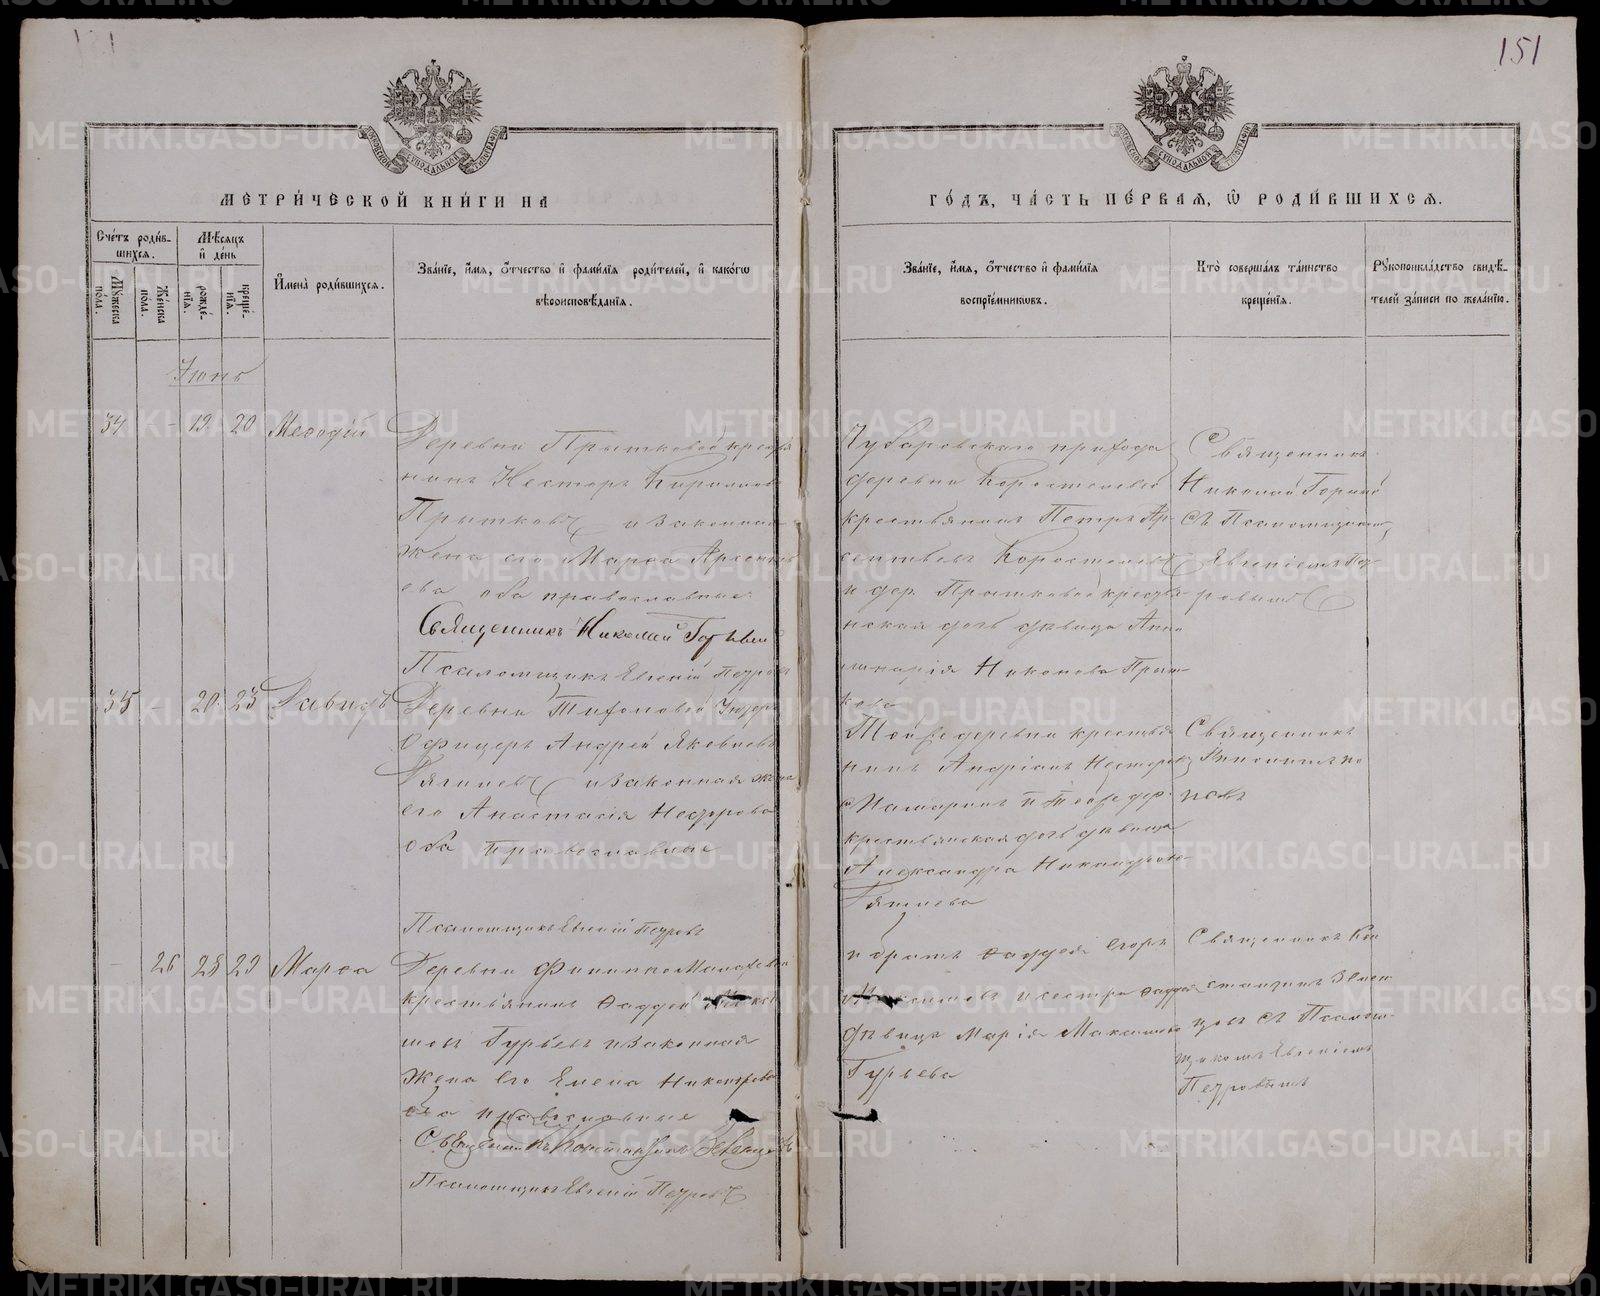 151
МЕТРИ́ЧЕСКОЙ КНИ́ГИ НА
ГО́ДЪ, ЧА́СТЬ ПЕ́РВАЯ, Ѡ РОДИ́ВШИХСЯ.
Сче́тъ роди́в-
шихся.
Мꙋжеска по́ла.
Же́нска по́ла.
Мѣ́сяцъ и де́нь
рожде́-
нїя.
креще́-
нїя.
Имена̀ роди́вшихся.
Зва́нїе, и́мя, о́тчество и фами́лїя роди́телей, и како́гѡ
вѣроисповѣ́данїя.
Зва́нїе, и́мя, о́тчество и фами́лїя
воспрїе́мникѡвъ.
Кто̀ соверша́лъ та́инство
креще́нїя.
Рꙋкоприкла́дство свидѣ́-
телей за́писи по жела́нїю.
Іюнь
34 - 19 20 Меѳодій
Деревни Прытковой крестья
нинъ Несторъ Кирилловъ
Прытковъ и законная
жена его Марѳа Арсенть
ева оба православные.
Священникъ Николай
Псаломщикъ Евгеній Петровъ
Чубаровскаго прихода
деревни Коростелевой
крестьянинъ Петръ Ар-
сентьевъ Коростелевъ
и дер. Прытковой кресть-
янская дочь дѣвица Апол
линарія Никонова Прыт-
кова
Священникъ
Николай
съ Псаломщикомъ
Евгеніемъ Пет-
ровымъ
35 - 20 23 Давидъ
Деревни Тихоновой Унтеръ
Офицеръ Андрей Яковлевъ
и законная жена
его Анастасія Несторова
оба православные
Псаломщикъ Евгеній Петровъ
Той же деревни крестья
нинъ Андріанъ Несторовъ
и той же дер.
крестьянская дочь дѣвица
Александра Никандрова
Священникъ
- 26 28 29 Марѳа
Деревни
крестьянинъ Ѳаддей Макси
мовъ Гурьевъ и законная
жена его Елена
оба православные
Священникъ Константинъ
Псаломщикъ Евгеній Петровъ
и братъ Ѳаддея Егоръ
Максимовъ и сестра Ѳаддея
дѣвица Марія Максимова
Гурьева
Священникъ Кон
стантинъ
съ Псалом-
щикомъ Евгеніемъ
Петровымъ
METRIKI.GASO-URAL.RU